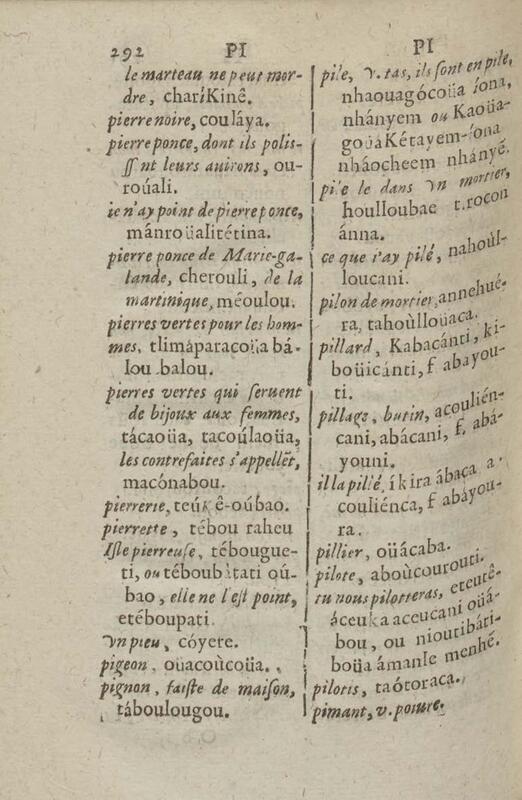 292 PI
le marteau ne peut mor-
dre, chariKinê.
pierre noire, couláya.
pierre ponce, dont ils polis-
sent leurs auirons, ou-
roúali.
ie n'ay point de pierre ponce,
mánroüalitétina.
pierre ponce de Marie-ga-
lande, cherouli, de la
martinique, méoulou.
pierres vertes pour les hom-
mes, tlimáparacoüa bá-
lou balou.
pierres vertes qui seruent
de bijoux aux femmes,
tácaoüa, tacoúlaoüa,
les contrefaites s'appellẽt,
macónabou.
pierrerie, teúkê-oúbao.
pierrette, tébou raheu
Isle pierreuse, tébougue-
ti, ou téboubátati oú-
bao, elle ne l'est point,
etéboupati.
Vn pieu, cóyere.
pigeon, oüacoùcoüa.
pignon, faiste de maison,
táboulougou.
PI
pile, v. tas, ils sont en pile,
nhaouagócoüa íona,
nhányem ou Kaoüa-
goüáKétayem-íona
nháocheem nhányé.
pile le dans vn mortier,
houlloubae t.rocon
ánna.
ce que i'ay pilé, nahoùl-
loucani.
pilon de mortier, annehué-
ra, tahoùlloüaca.
pillard, Kabacánti, ki-
boüicánti, f. abayou-
ti.
pillage, butin, acoulién-
cani, abácani, f. abá-
youni.
il la pillé, íkira ábaca a-
couliénca, f. abáyou-
ra.
pillier, oüácaba.
pilote, aboùcourouti.
tu nous pilotteras, eteutê-
áceuka aceucani oüá-
bou, ou nioutibáti-
boüa ámanle menhé.
pilotis, taótoraca.
pimant, v. poiure.